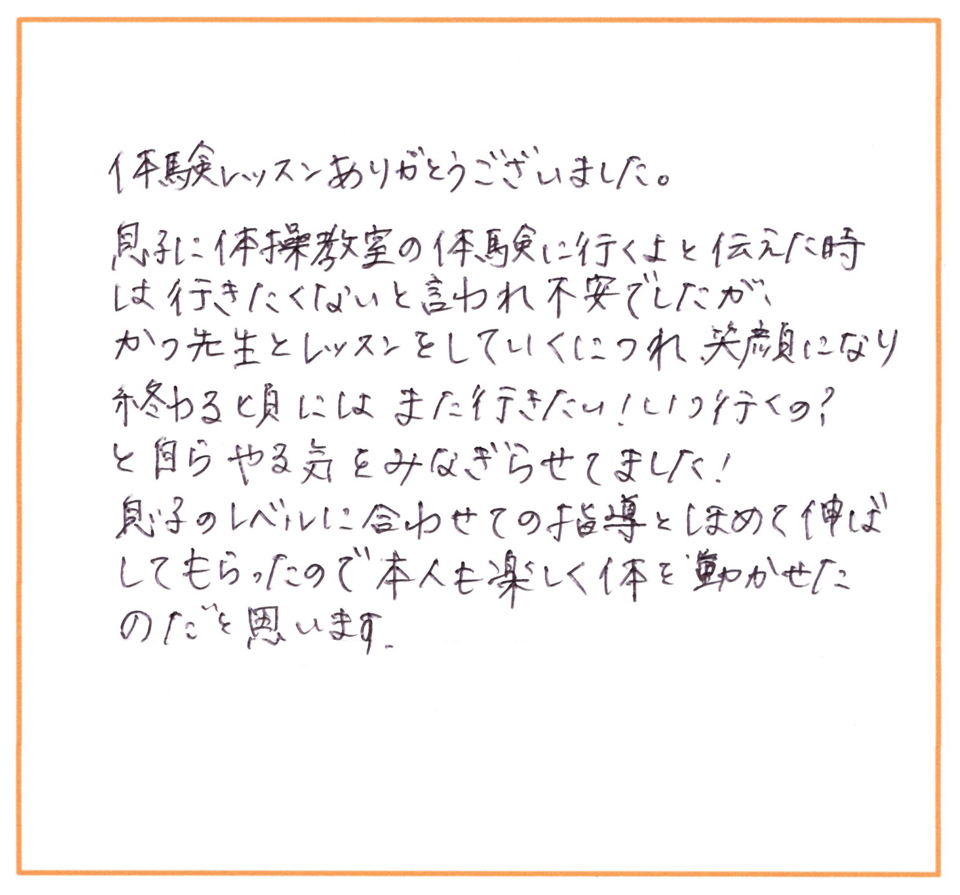 体験レッスンありがとうございました。
息子に体操教室の体験に行くよと伝えた時
は行きたくないと言われ不安でしたが、
かつ先生とレッスンをしていくにつれ、笑顔になり
終わる頃にはまた行きたい！いつ行くの？
と自らやる気をみなぎらせてました！
息子のレベルに合わせての指導とほめて伸ば
してもらったので本人も楽しく体を動かせた
のだと思います.